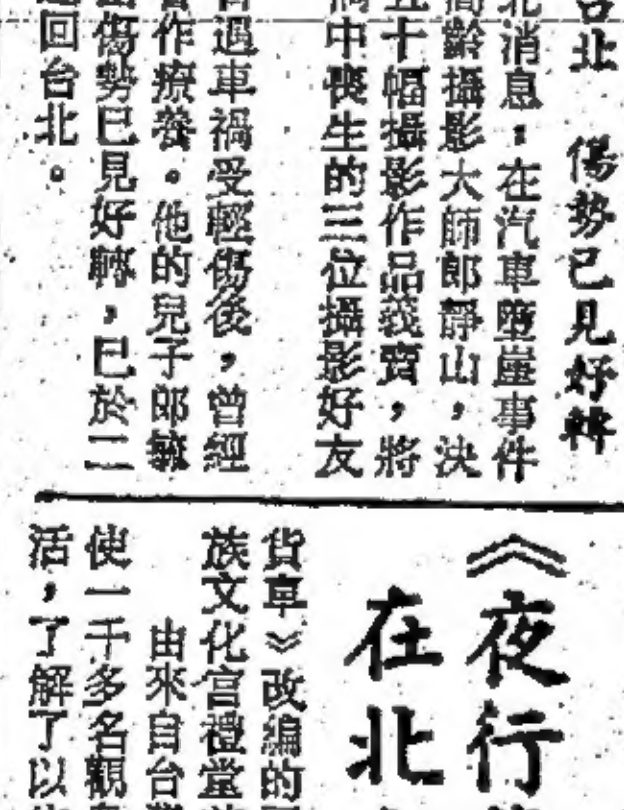 台北 傷勢已見好轉
北消息：在汽車墮崖事件
高齡攝影大師郎靜山，決
五十幅攝影作品義賣，將
禍中喪生的三位攝影好友
過車禍受輕傷後，曾經
作療養。他的兒子郎毓
傷勢已見好轉，已於二
回台北。
《夜行
在北
貨車》改編的
族文化宮禮堂
由來自台灣
使一千多名觀
活，了解了以